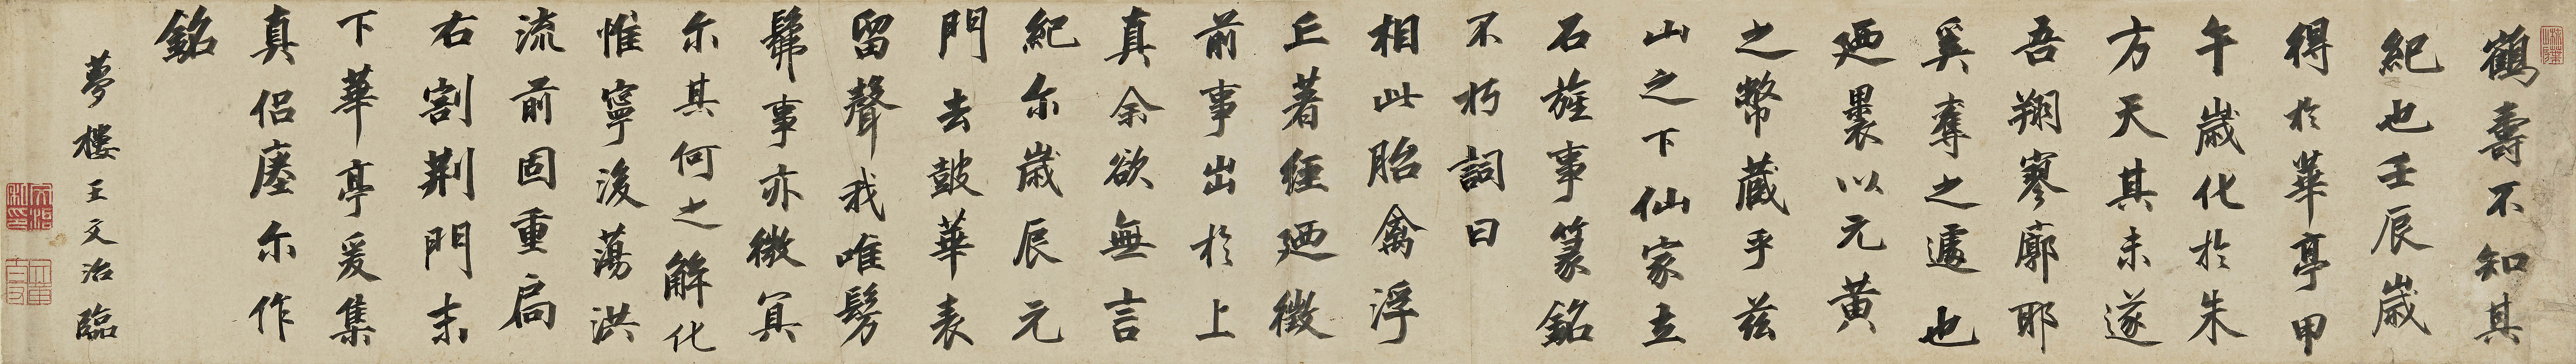 鶴壽不知其
紀也壬辰歲
得於華亭甲
午歲化於朱
方天其未遂
吾翔寥廓耶
奚奪之遽也
廼裹以元黃
之幣藏乎茲
山之下仙家立
石旌事篆銘
不朽詞曰
相此胎禽浮
丘著經廼徵
前事出於上
真余欲無言
紀尔歲辰元
門去鼓華表
留聲我唯髣
髴事亦微冥
尔其何之解化
惟寧後蕩洪
流前固重扃
右割荆門未
下華亭爰集
真侶瘞尔作
銘
夢樓王文治臨